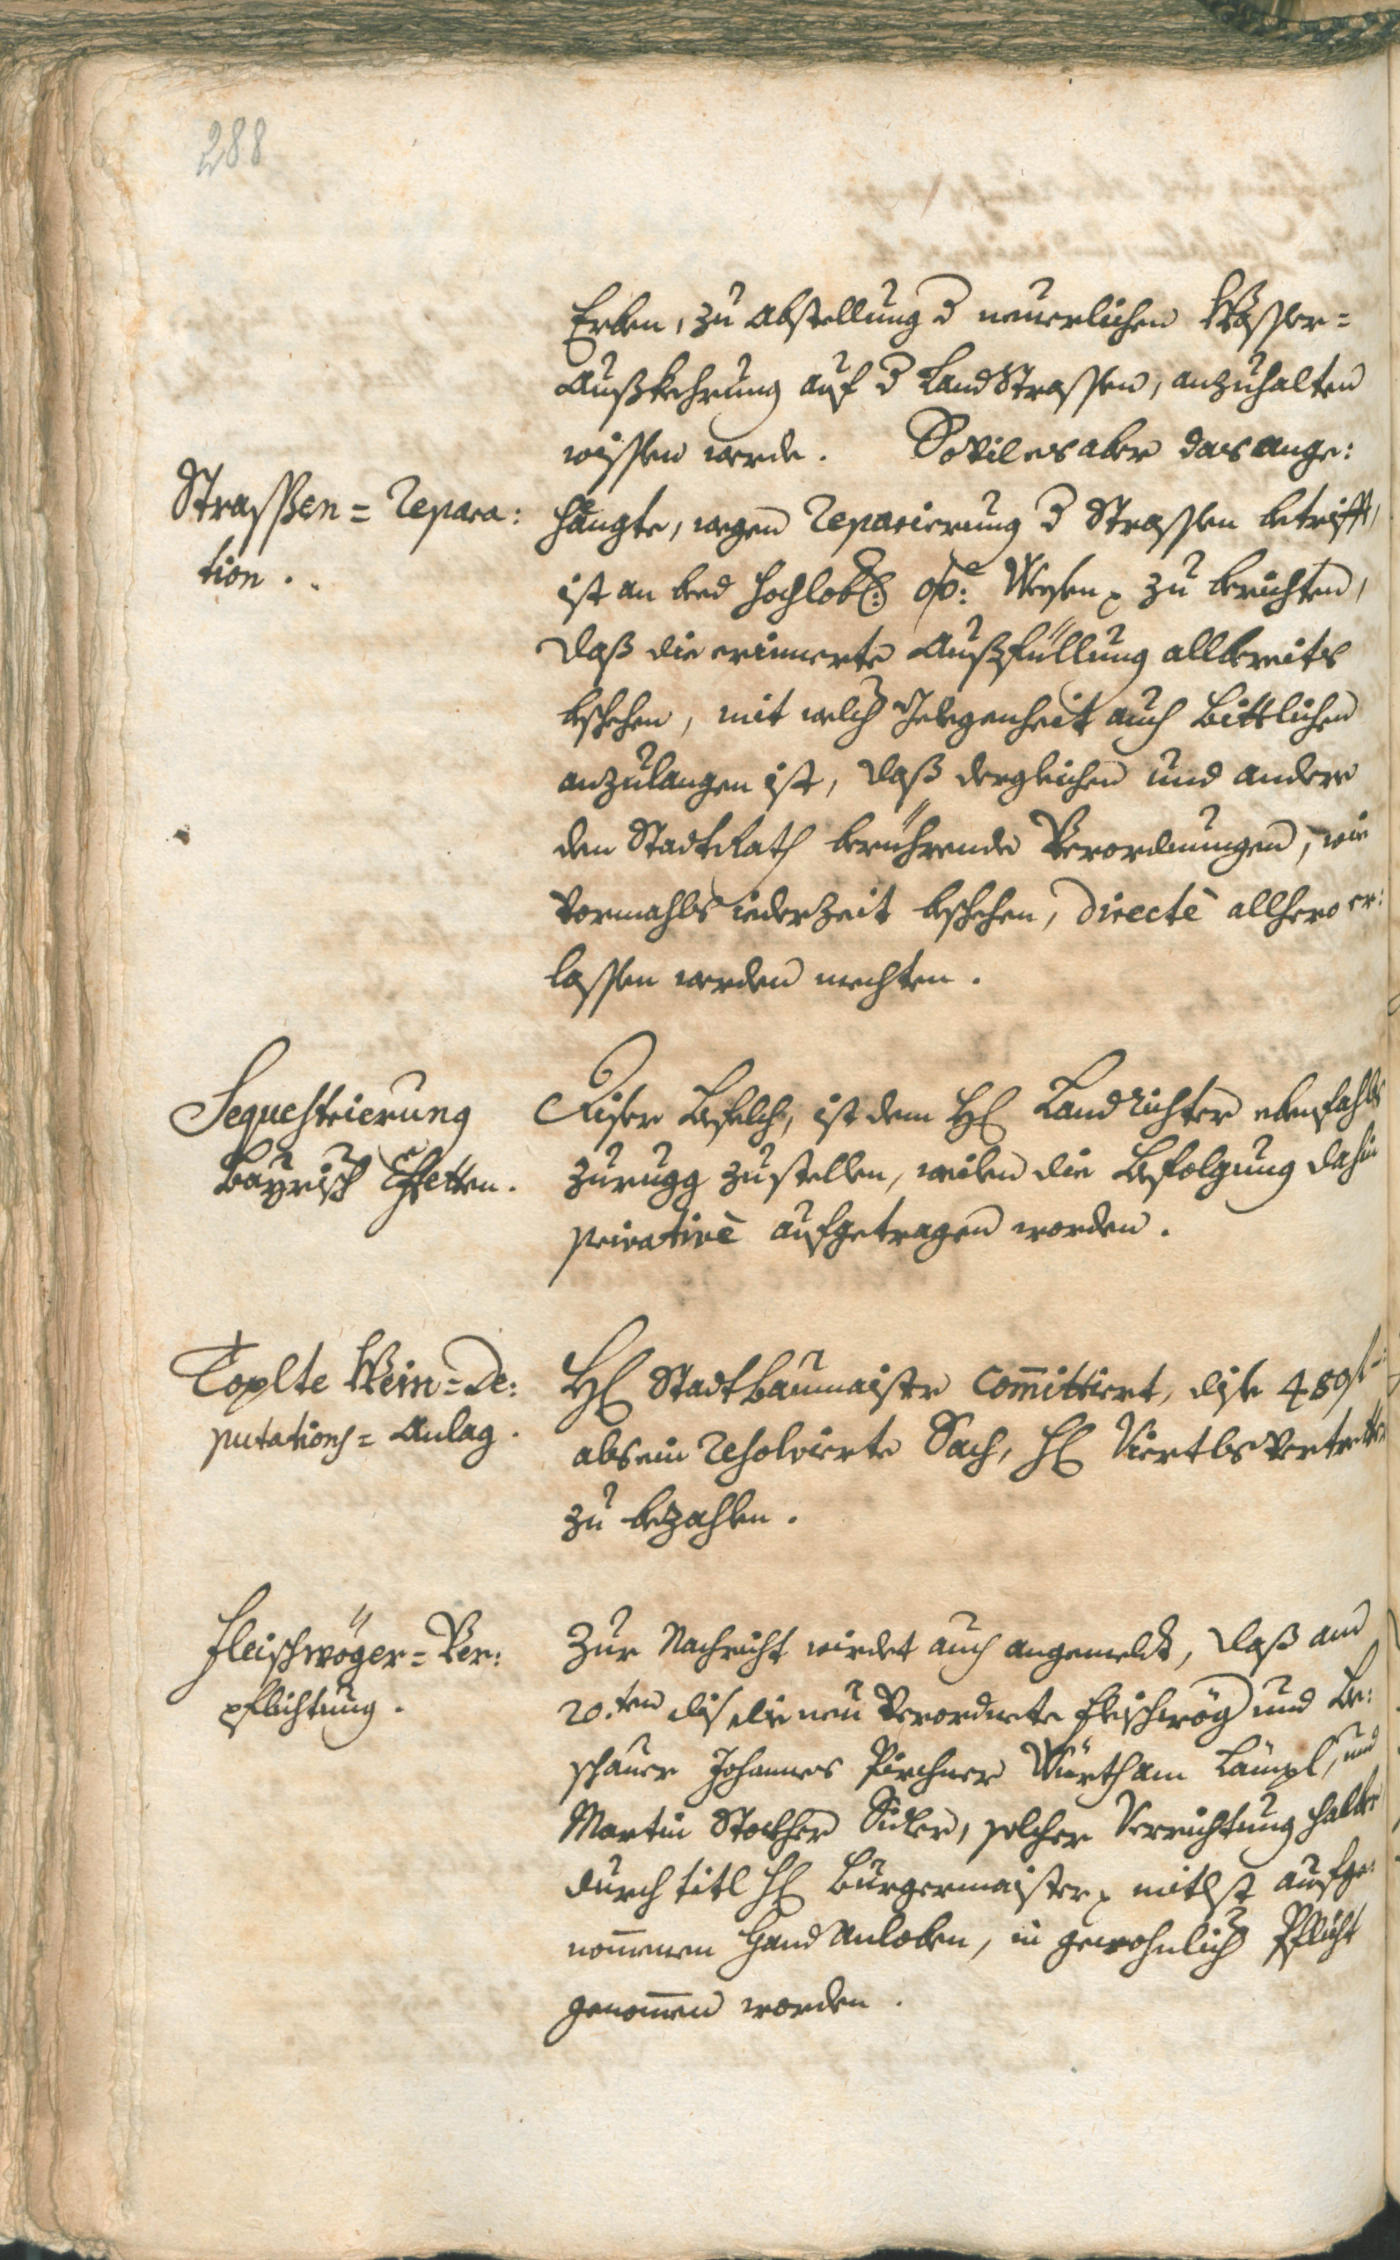 288
Erben, zu Abstellung d neuerlichen Wasser=
Außkehrung auf d Landstrassen, anzuhalten
wissen werde. Sovil es aber das ange:
Strassen= Repara:
tion.
hängte, wegen Reparierung d Strassen betrifft,
ist an bed hochlobl: Wesen zu berichten,
daß die erinnerte Außfüllung allbereits
beschehen, mit welch Gelegenheit auch bittlichen
anzulangen ist, daß dergleichen und andere
den StadtRath berührende Verordnungen, wie
vormahls iederzeit beschehen, directè allhero er:
lassen werden mechten.
Sequestrierung
Bayrisch Effetten.
Diser Befelch, ist dem H Landrichter ebenfahls
zurugg zustellen, weilen die Befolgung dahin
privativè aufgetragen worden.
Toplte Wein=De:
putations= Anlag.
H Stadtbaumaister committiert, dise 450 f
als ein resolvierte Sach, H Viertls Vertretter
zu bezahlen.
Fleischwöger= Ver:
pflichtung.
Zur Nachricht wirdet auch angemelt, daß am
20.ten dis die neu verordnete Fleischwög und Be:
schauer Johannes Pirchner Würth am Lämpl, und
Martin Stocker Sidler, solcher Verrichtung halber
durch titl H Burgermaister mitlst aufge:
nommenen Hand Anloben, in gewohnlich Pflicht
genommen worden.